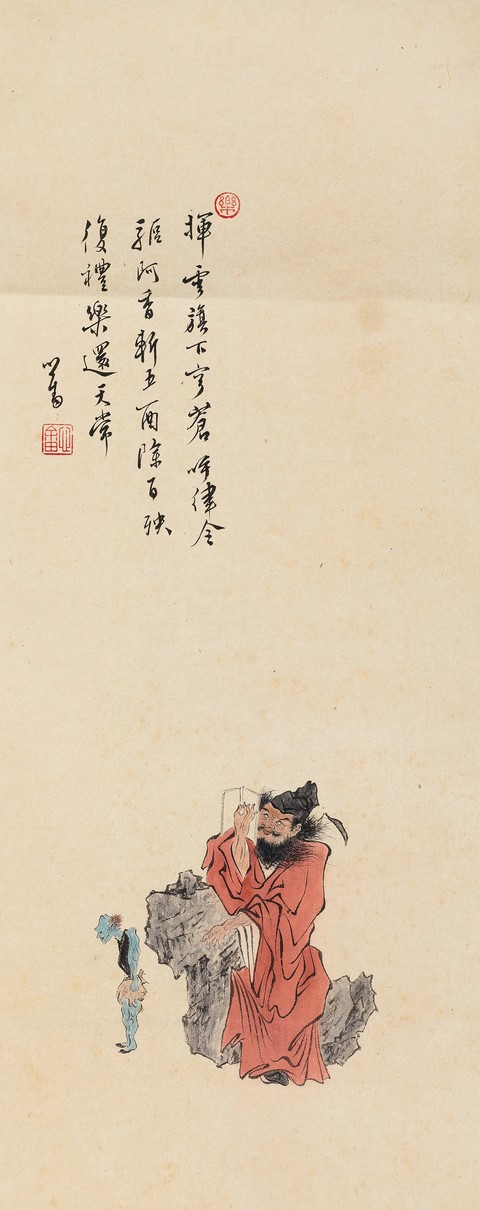 樂
揮雲旗下穹蒼呼律令
驅阿香斬五酉除百殃
復禮樂還天常
心畬
心畬